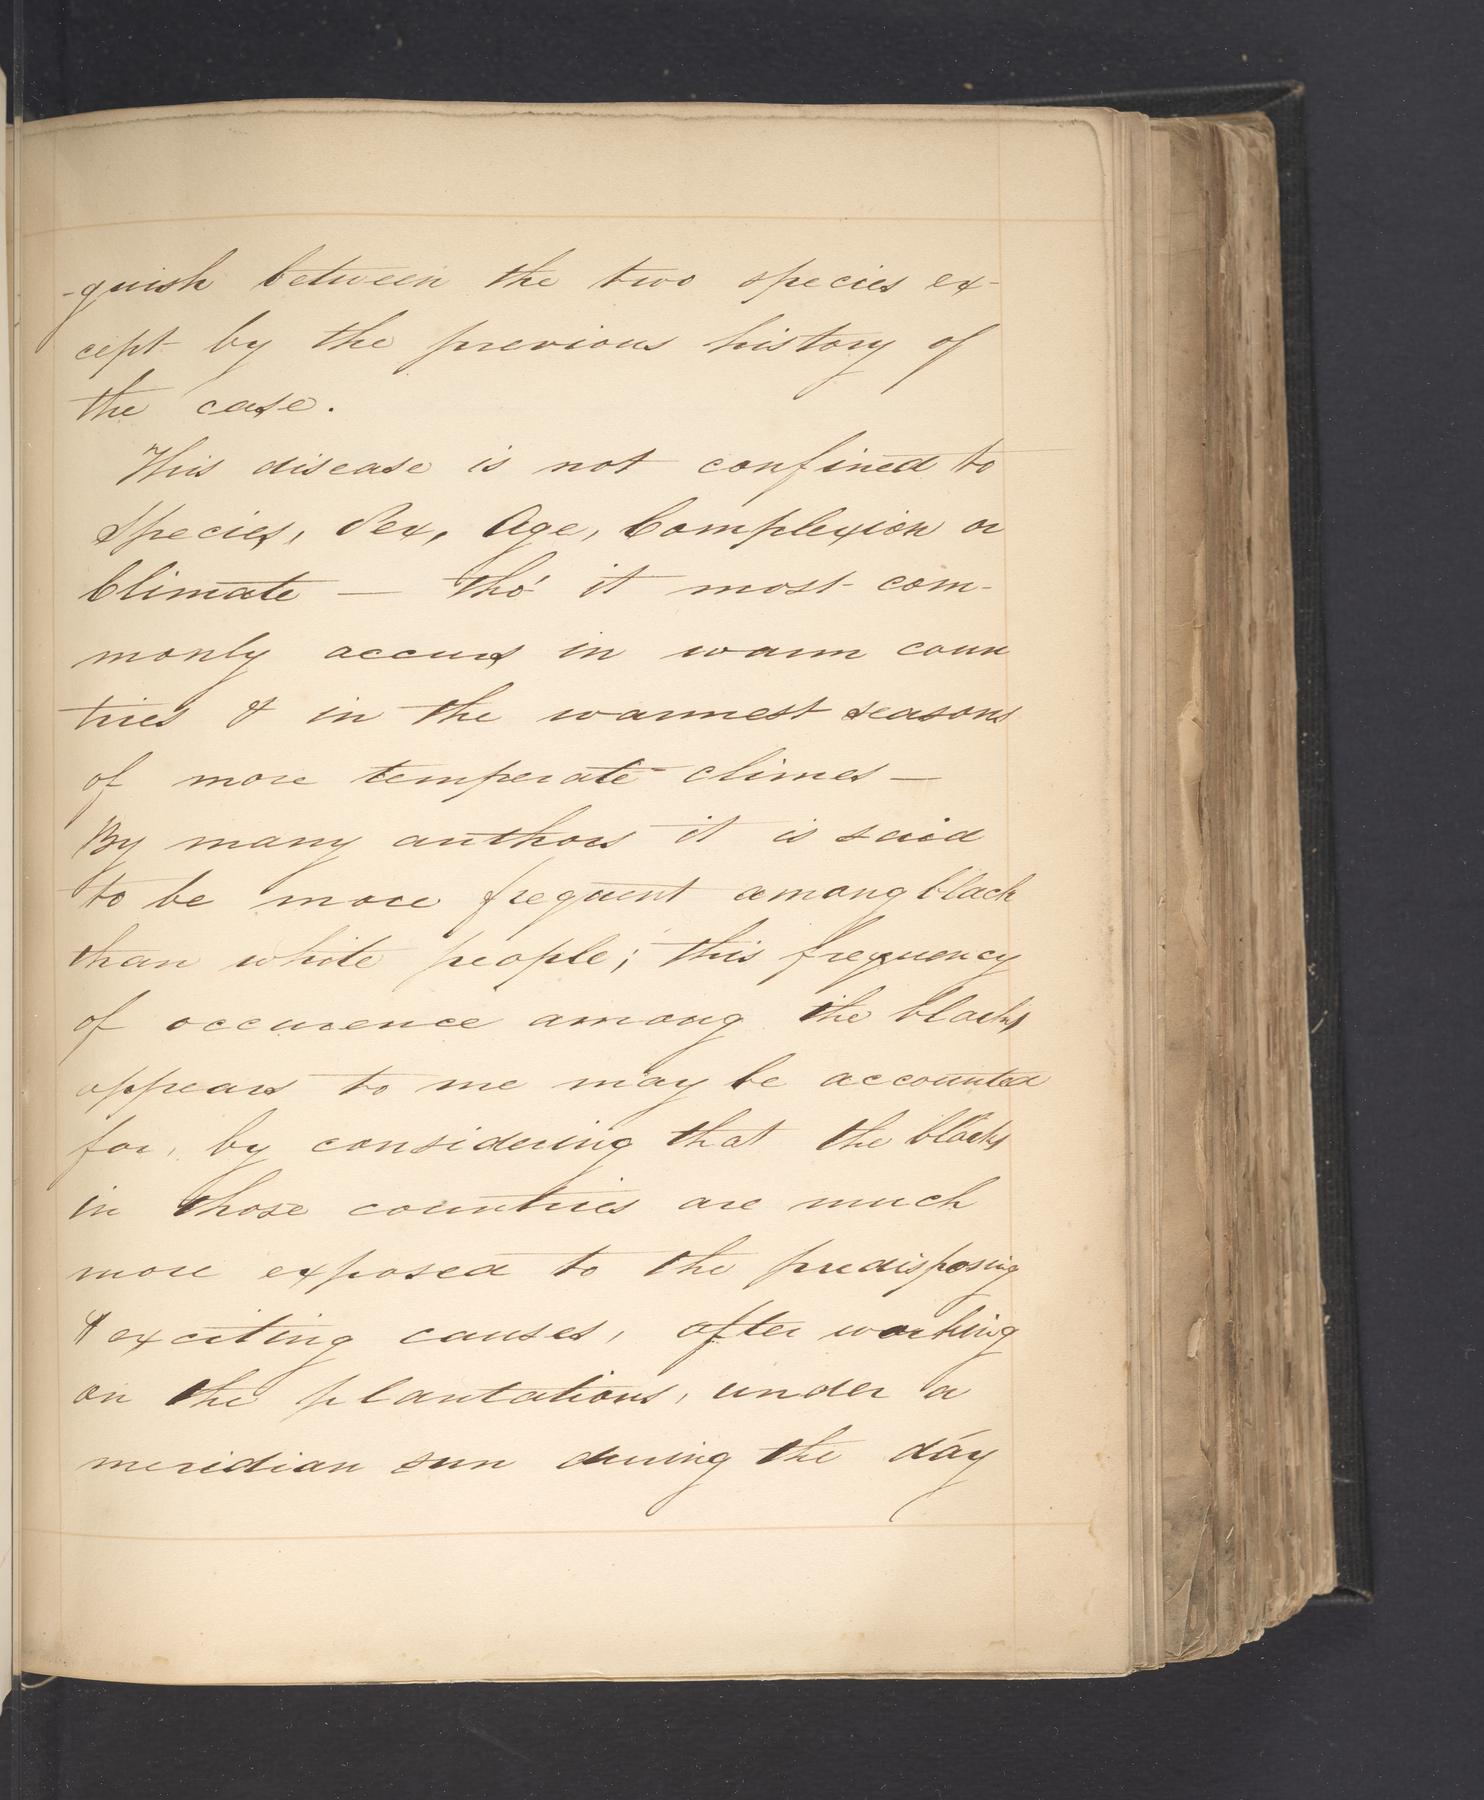 -guish between the two species ex-
cept by the previous history of
the case.
This disease is not confined to
Species, Sex, Age, Complexion or
Climate — tho' it most com-
monly occurs in warm coun
tries & in the warmest seasons
of more temperate climes —
By many authors it is said
to be more frequent among black
than white people; this frequency
of occurence among the blacks
appears to me may be accounted
for, by considering that the blacks
in those countries are much
more exposed to the predisposing
& exciting causes, after working
on the plantations, under a
meridian sun during the day